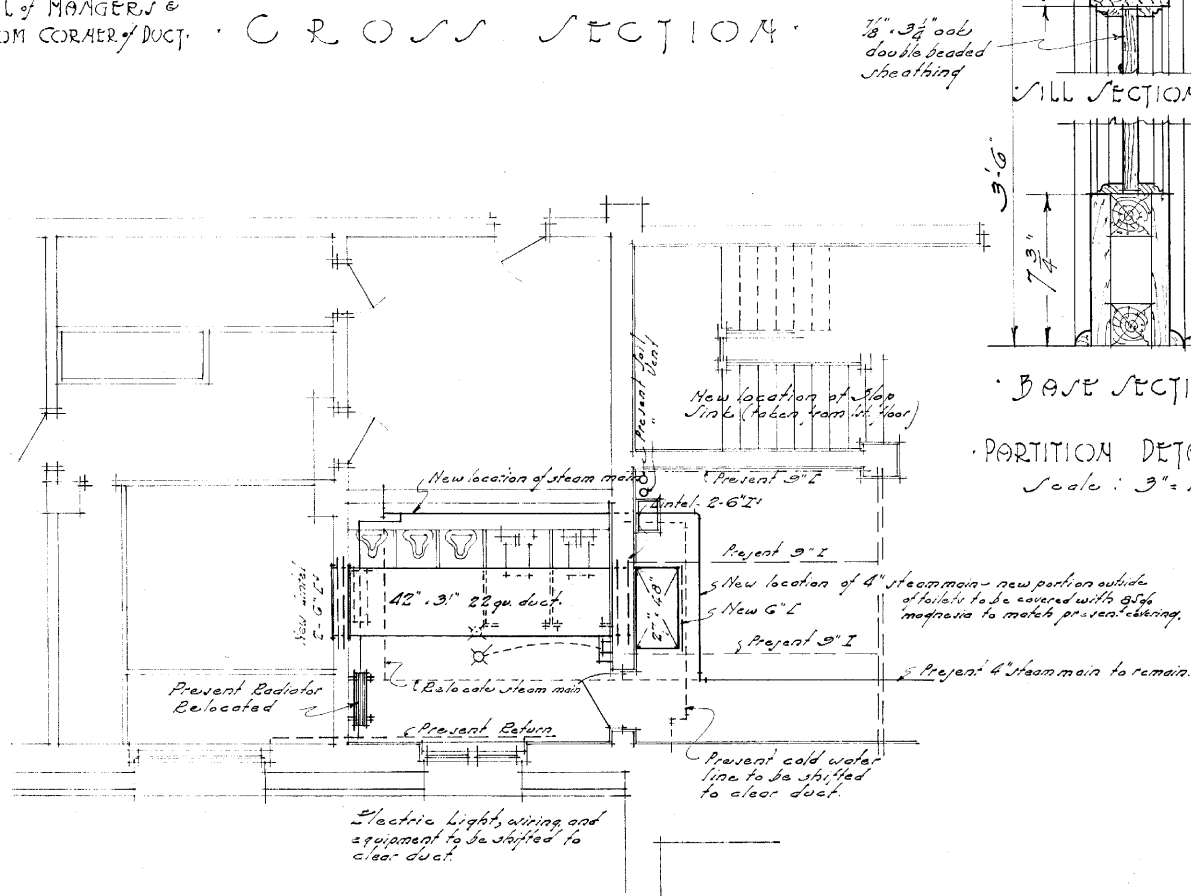 L of MANGERS &
OM CORNER of DUCT.
· CROSS SECTION ·
7/8" × 3 1/4" oak
double beaded
sheathing
· SILL SECTION
3'-6"
7 3/4"
· BASE SECTI
· PARTITION DETA
Scale : 3" =
Present Soil
Vent
New location of Slop
Sink (taken from 1st. floor)
New location of steam main
Present 9" I
Lintel- 2-6" Is
Present 9" I
New location of 4" steam main - new portion outside
of toilets to be covered with 85%
magnesia to match present covering.
New 6" I
New lintel
2-6" Is
42" × 31" 22 ga. duct.
48"
Present 9" I
Present 4" steam main to remain.
Relocate steam main
Present Radiator
Relocated
Present Return
Present cold water
line to be shifted
to clear duct.
Electric Light, wiring, and
equipment to be shifted to
clear duct.